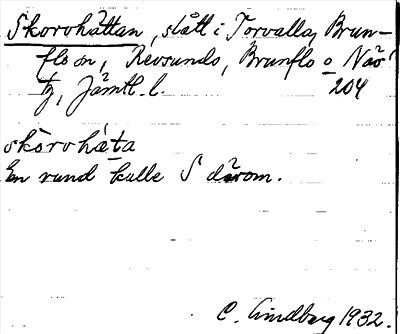 Skorvhättan, slått i Torvalla, Brun-
flo sn, Revsunds, Brunflo o Näs
tg, Jämtl. l. 204
skòrvhæ̀ta
En rund kulle S därom.
C. Lindberg 1932.